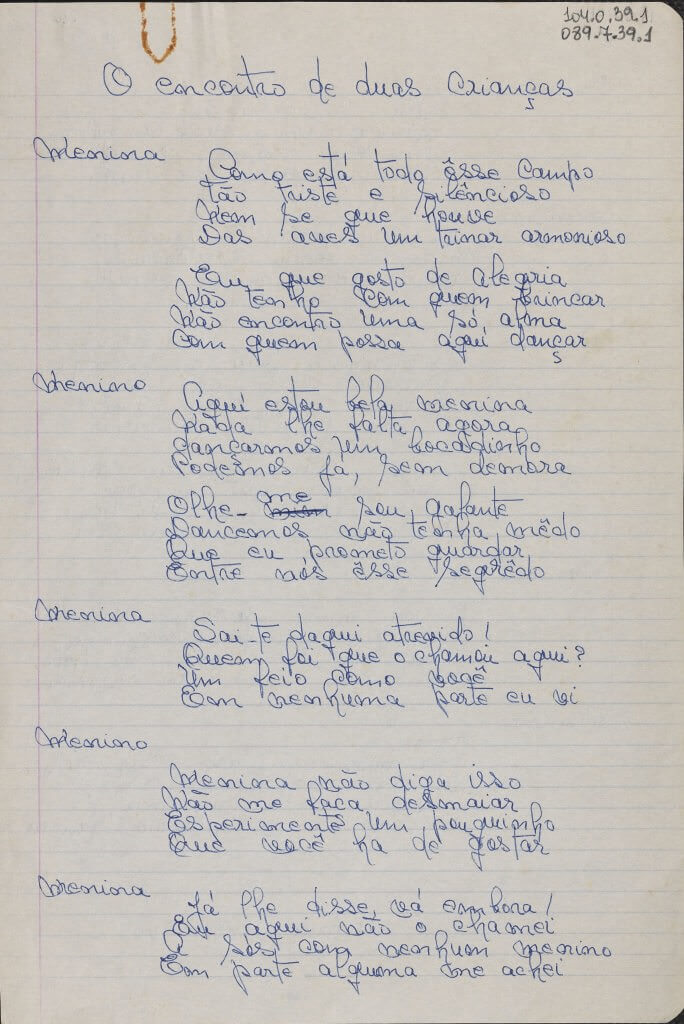 104.0.39.1
089.7.39.1
O encontro de duas Crianças
Menina
Como está todo êsse campo
Tão triste e silêncioso
Nem se que houve
Das aves um trinar armonioso
Eu que gosto de alegria
Não tenho com quem brincar
Não encontro uma só alma
Com quem possa aqui dançar
Menino
Aqui estou bela menina
Nada lhe falta agora
Dançarmos um bocadinho
Podemos já, sem demora
Olhe-me sou galante
Dancemos não tenha mêdo
Que eu prometo guardar
Entre nós êsse segrêdo
Menina
Sai-te daqui atrevido!
Quem foi que o chamou aqui?
Um feio como você
Em nenhuma parte eu vi
Menino
Menina não diga isso
Não me faça desmaiar
Esperimente um pouquinho
Que você ha de gostar
Menina
Já lhe disse, vá embora!
Eu aqui não o chamei
A sos com nenhum menino
Em parte alguma me achei